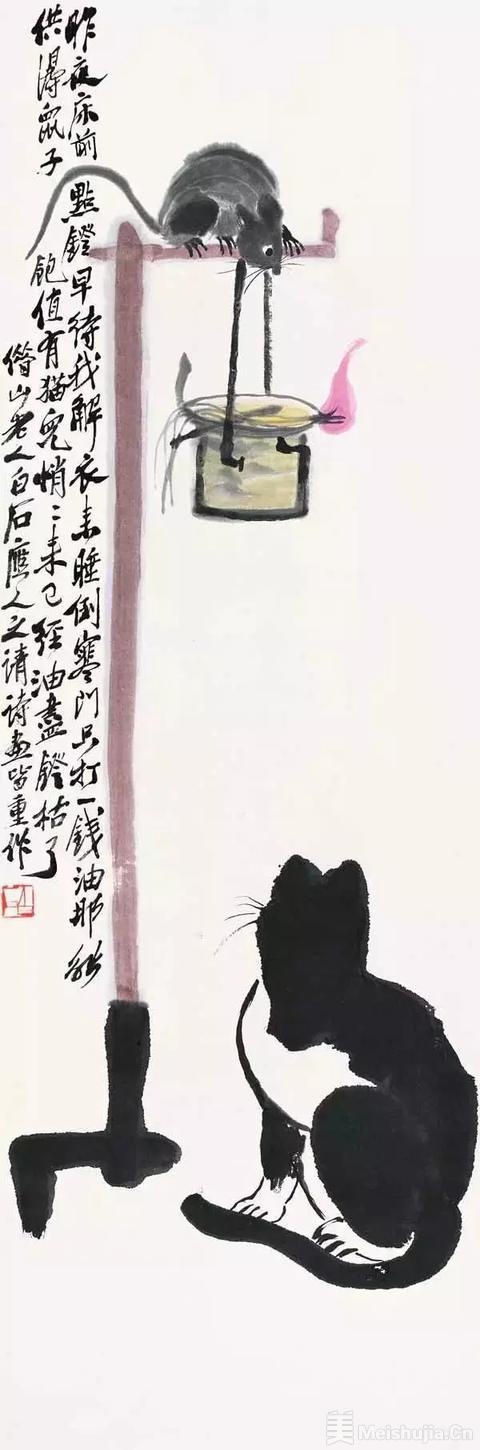 昨夜床前點鐙早待我解衣來睡倒寒門只打一錢油那能
供得鼠子飽值有猫兒悄〻來已經油盡鐙枯了
借山老人白石應人之請詩畫皆重作
美 Meishujia.Cn